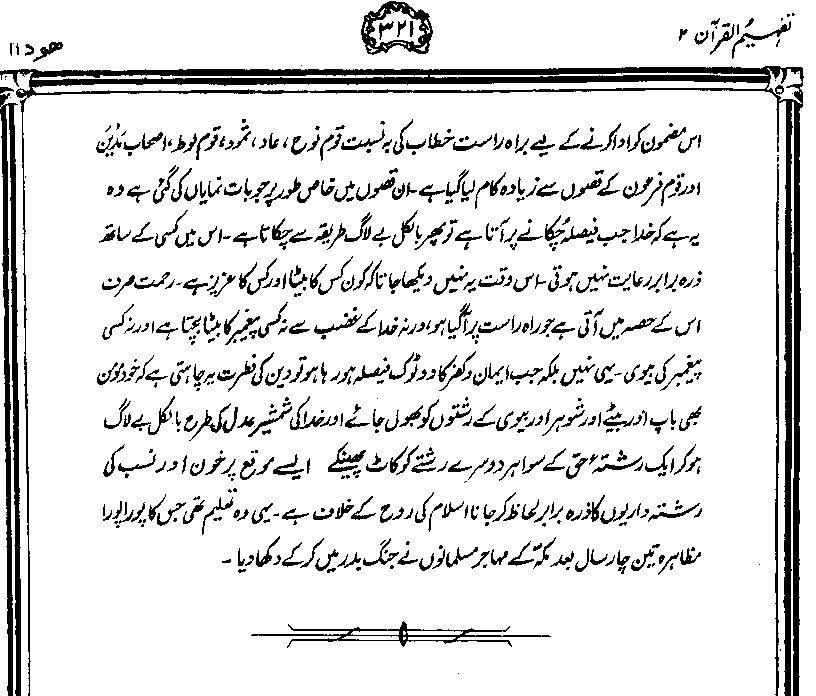 تفہیم القرآن ۲
۳۲۱
ھود ۱۱
اس مضمون کو ادا کرنے کے لیے براہ راست خطاب کی بہ نسبت قوم نوح، عاد، ثمود، قوم لوط، اصحاب مَدْیَن
اور قوم فرعون کے قصوں سے زیادہ کام لیا گیا ہے۔ ان قصوں میں خاص طور پر جو بات نمایاں کی گئی ہے وہ
یہ ہے کہ خدا جب فیصلہ چُکانے پر آتا ہے تو پھر بالکل بے لاگ طریقہ سے چکاتا ہے۔ اس میں کسی کے ساتھ
ذرہ برابر رعایت نہیں ہوتی۔ اس وقت یہ نہیں دیکھا جاتا کہ کون کس کا بیٹا اور کس کا عزیز ہے۔ رحمت صرف
اس کے حصہ میں آتی ہے جو راہ راست پر آگیا ہو، ورنہ خدا کے غضب سے نہ کسی پیغمبر کا بیٹا بچتا ہے اور نہ کسی
پیغمبر کی بیوی۔ یہی نہیں بلکہ جب ایمان و کفر کا دو ٹوک فیصلہ ہو رہا ہو تو دین کی فطرت یہ چاہتی ہے کہ خود مومن
بھی باپ اور بیٹے اور شوہر اور بیوی کے رشتوں کو بھول جائے اور خدا کی شمشیر عدل کی طرح بالکل بے لاگ
ہو کر ایک رشتۂ حق کے سوا ہر دوسرے رشتے کو کاٹ پھینکے ایسے موقع پر خون اور نسب کی
رشتہ داریوں کا ذرہ برابر لحاظ کر جانا اسلام کی روح کے خلاف ہے۔ یہی وہ تعلیم تھی جس کا پورا پورا
مظاہرہ تین چار سال بعد مکہ کے مہاجر مسلمانوں نے جنگ بدر میں کر کے دکھا دیا۔